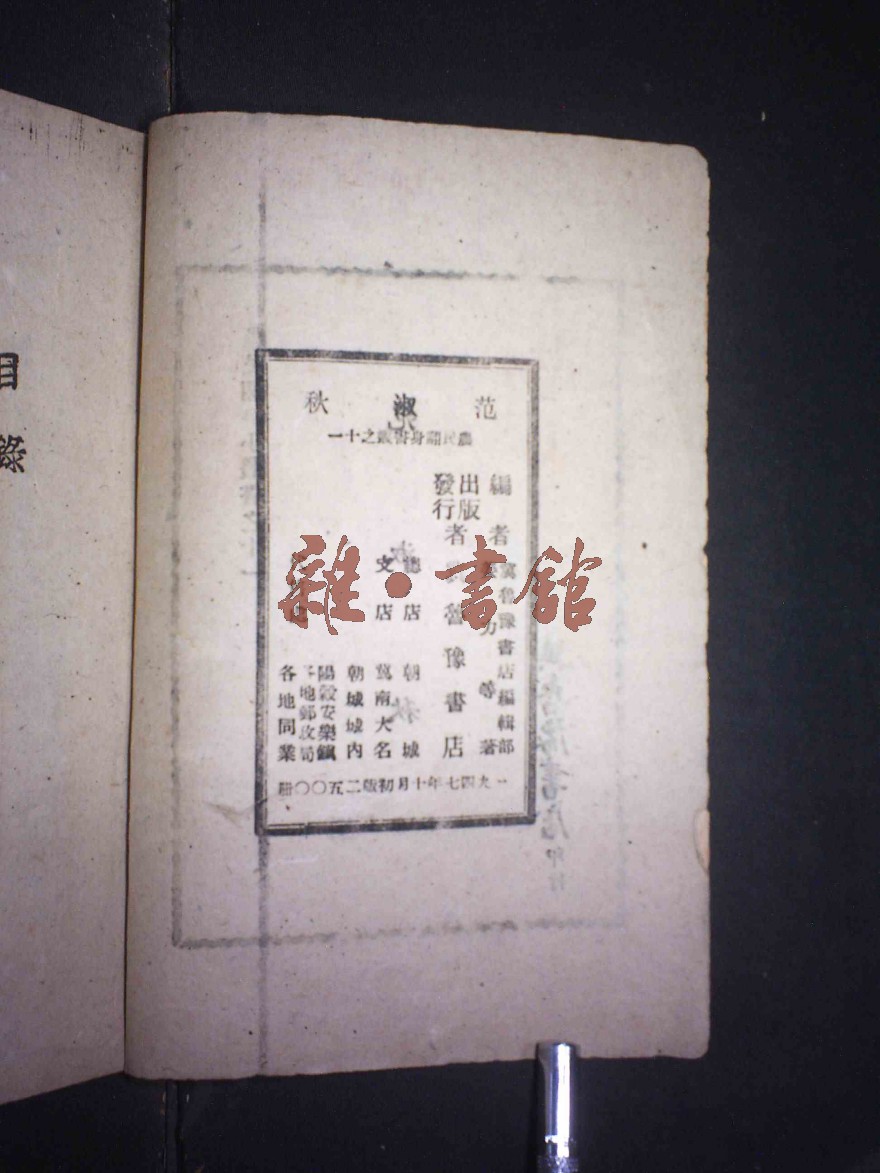 范淑秋
農民翻身書叢之十一
編者
冀魯豫書店編輯部
力等著
出版
發行
者
魯豫書店
總店 朝城
文店 冀南大名
朝城城內
陽穀安樂鎮
各地郵政局
各地同業
一九四七年十月初版二五〇〇冊
雜·書館
目錄